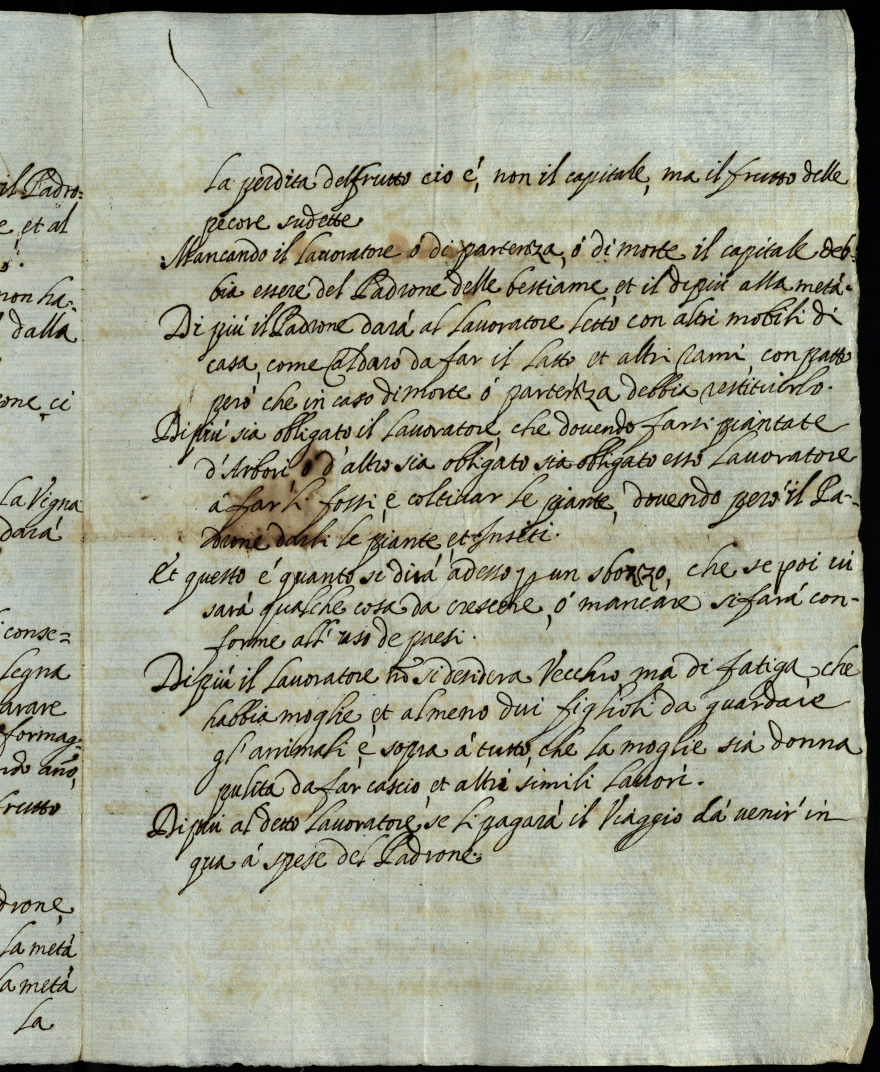 il Padro=
e, et al
non ha-
dalla
one, ci
La Vigna
dará
conse=
legna
arare
formag-
frutto
drone,
la metá
la metá
La
La perdita del frutto cio é, non il capitale, ma il frutto delle
pecore sudette
Mancando il Lauoratore ó di partenza, ó di morte il capitale deb-
bia essere del Padrone delle bestiame, et il di piú alla metá.
Di piú il Padrone dará al Lauoratore letto con altri mobili di
casa, come Caldaro da far il latte et altri rami, con patto
peró che in caso di morte ó partenza debbia restituirlo.
Di piú sia obligato il Lauoratore, che douendo farsi piantate
d'Arbori ó d'altro sia obligato sia obligato esso Lauoratore
á far li fossi, e coltiuar le piante, douendo peró il Pa-
drone darli le piante, et Inseti.
Et questo é quanto si dirá adesso p un sborzo, che se poi ui
sará qualche cosa da crescere, ó mancare si fará con-
forme all' uso de paesi.
Di piú il Lauoratore nō si desidera Vecchio, ma di fatiga, che
habbia moglie, et almeno dui figlioli da guardare
gl'animali, e sopra á tutto, che la moglie sia donna
pulita da far cascio, et altri simili lauori.
Di piú al detto Lauoratore, se li pagará il Viaggio dá uenir' in
qua á spese del Padrone.